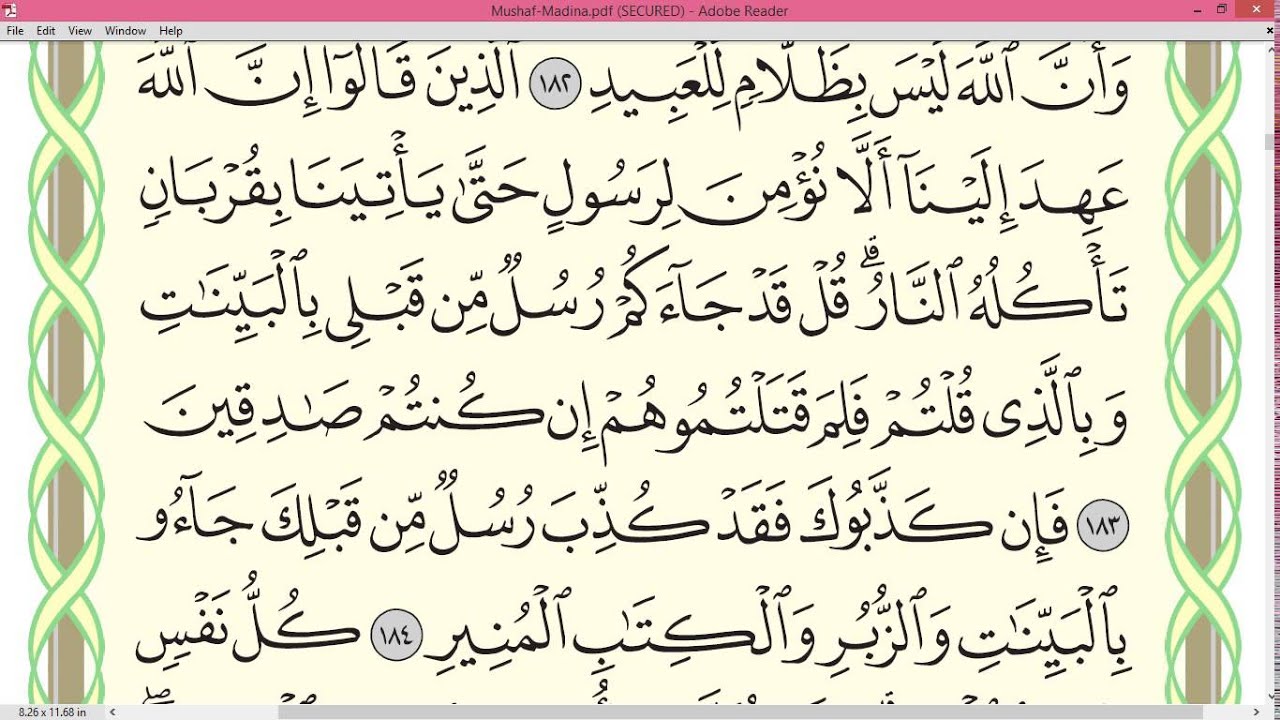 Mushaf-Madina.pdf (SECURED) - Adobe Reader
File Edit View Window Help
وَأَنَّ ٱللَّهَ لَيْسَ بِظَلَّامٍ لِّلْعَبِيدِ ١٨٢ ٱلَّذِينَ قَالُوٓا۟ إِنَّ ٱللَّهَ
عَهِدَ إِلَيْنَآ أَلَّا نُؤْمِنَ لِرَسُولٍ حَتَّىٰ يَأْتِيَنَا بِقُرْبَانٍ
تَأْكُلُهُ ٱلنَّارُ ۗ قُلْ قَدْ جَآءَكُمْ رُسُلٌ مِّن قَبْلِى بِٱلْبَيِّنَٰتِ
وَبِٱلَّذِى قُلْتُمْ فَلِمَ قَتَلْتُمُوهُمْ إِن كُنتُمْ صَٰدِقِينَ
١٨٣ فَإِن كَذَّبُوكَ فَقَدْ كُذِّبَ رُسُلٌ مِّن قَبْلِكَ جَآءُو
بِٱلْبَيِّنَٰتِ وَٱلزُّبُرِ وَٱلْكِتَٰبِ ٱلْمُنِيرِ ١٨٤ كُلُّ نَفْسٍ
8.26 x 11.68 in